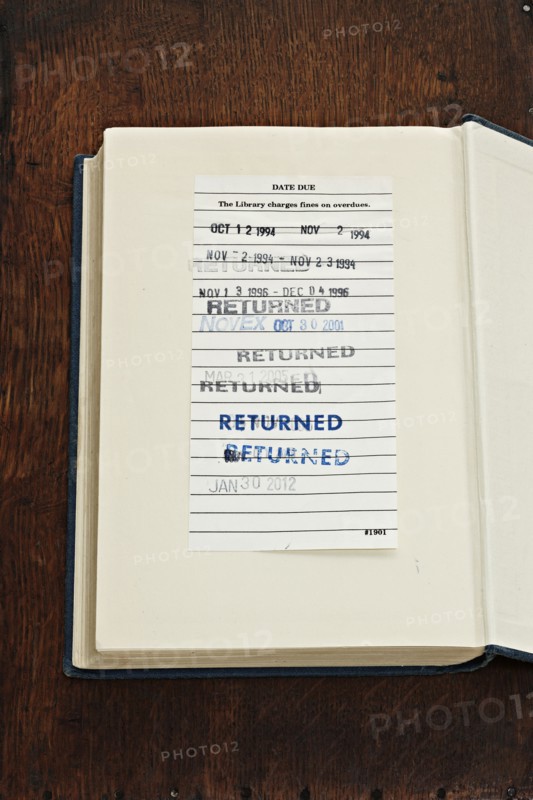 DATE DUE
The Library charges fines on overdues.
OCT 12 1994 NOV 2 1994
NOV -2-1994 - NOV 23 1994
RETURNED
NOV 13 1996 - DEC 04 1996
RETURNED
NOVEX OCT 30 2001
RETURNED
MAR 31 2005
RETURNED
RETURNED
RETURNED
JAN 30 2012
#1901
PHOTO12